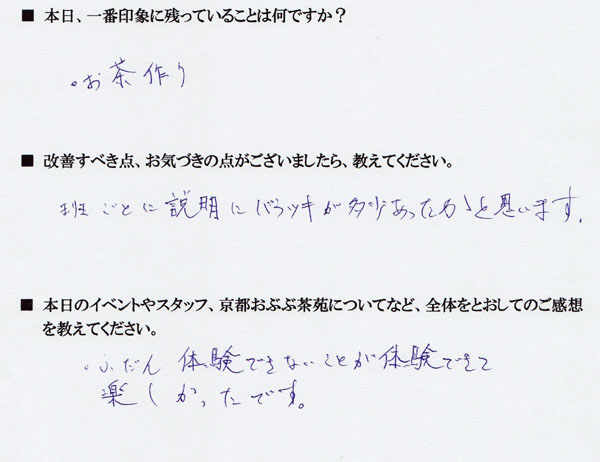 ■ 本日、一番印象に残っていることは何ですか？
・お茶作り
■ 改善すべき点、お気づきの点がございましたら、教えてください。
班ごとに説明にバラツキが多少あったかと思います。
■ 本日のイベントやスタッフ、京都おぶぶ茶苑についてなど、全体をとおしてのご感想
を教えてください。
・ふだん体験できないことが体験できて
楽しかったです。